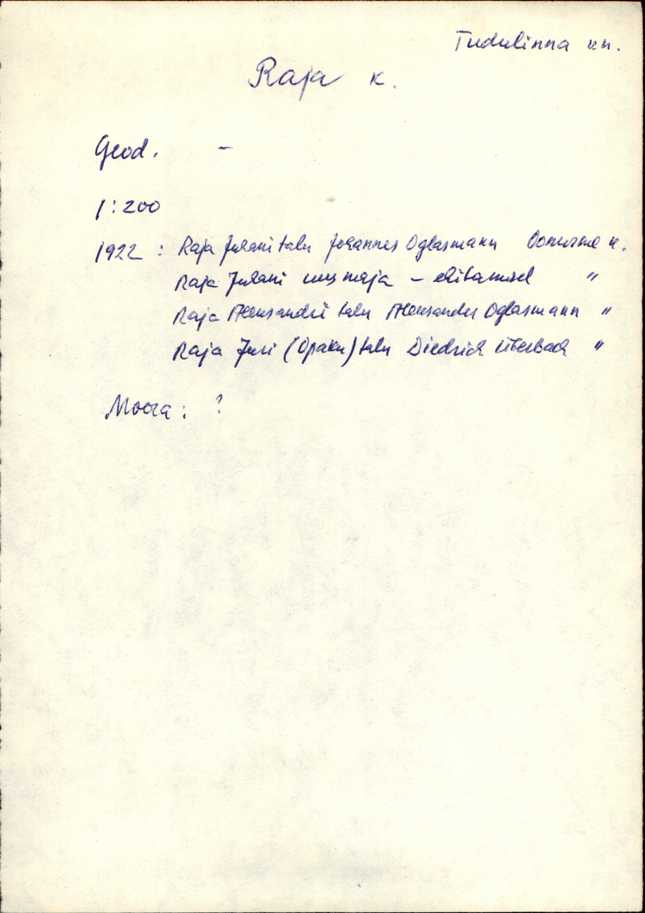 Tudulinna vn.
Raja k.
Geod. -
1:200
1922 : Raja Juhani talu Johannes Oglasmann Oonurme k.
Raja Juhani uus maja - ehitamisel "
Raja Aleksandri talu Aleksander Oglasmann "
Raja Juri (Opaku) talu Diedrich Uberbach "
Moora: ?